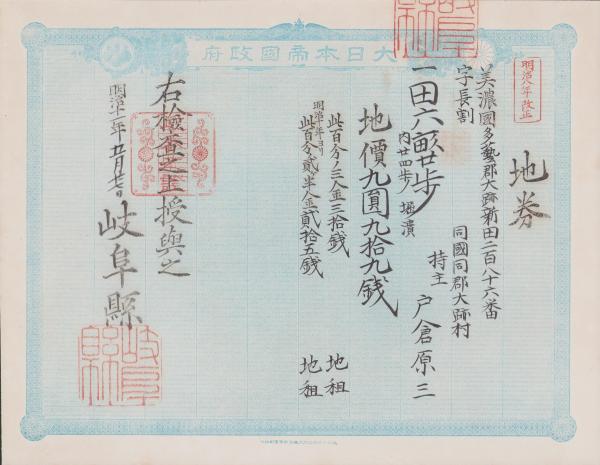 大日本帝國政府
明治八年改正
地券
美濃國多藝郡大跡新田二百八十六番
字長割
同國同郡大跡村
持主 戸倉原三
一田六畝廿歩
内廿四歩 堀潰
地價九圓九拾九錢
此百分ノ三金三拾錢 地租
明治十年ヨリ
此百分ノ貳半金貳拾五錢 地租
右檢査之上授與之
明治十一年五月廿七日
岐阜縣
岐阜縣
岐阜縣